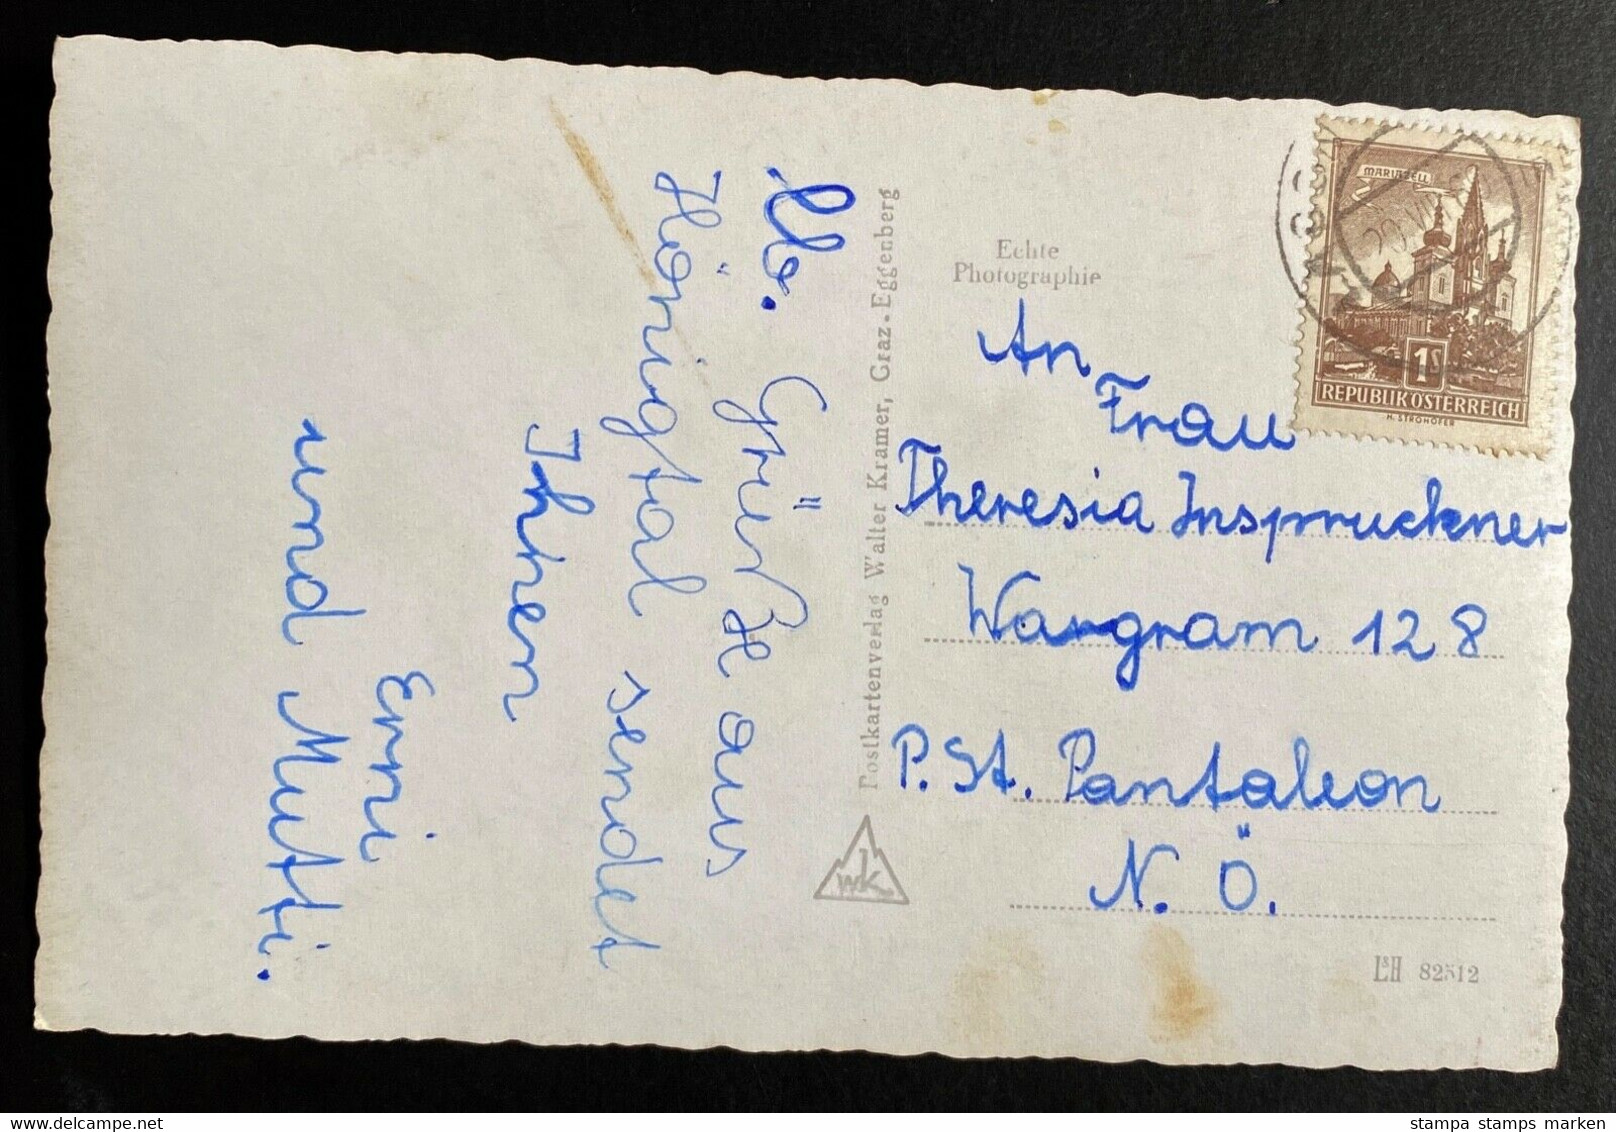 lb. Grüße aus
Hönigtal sendet
Ihnen
Erni
und Mutti.
Postkartenverlag Walter Kramer, Graz-Eggenberg
wk
Echte
Photographie
An
Frau
Theresia Inspruckner
Wargram 128
P. St. Pantaleon
N. Ö.
L&H 82512
MARIAZELL
20. VIII
1S
REPUBLIK ÖSTERREICH
H. STROHOFER
stampa stamps marken